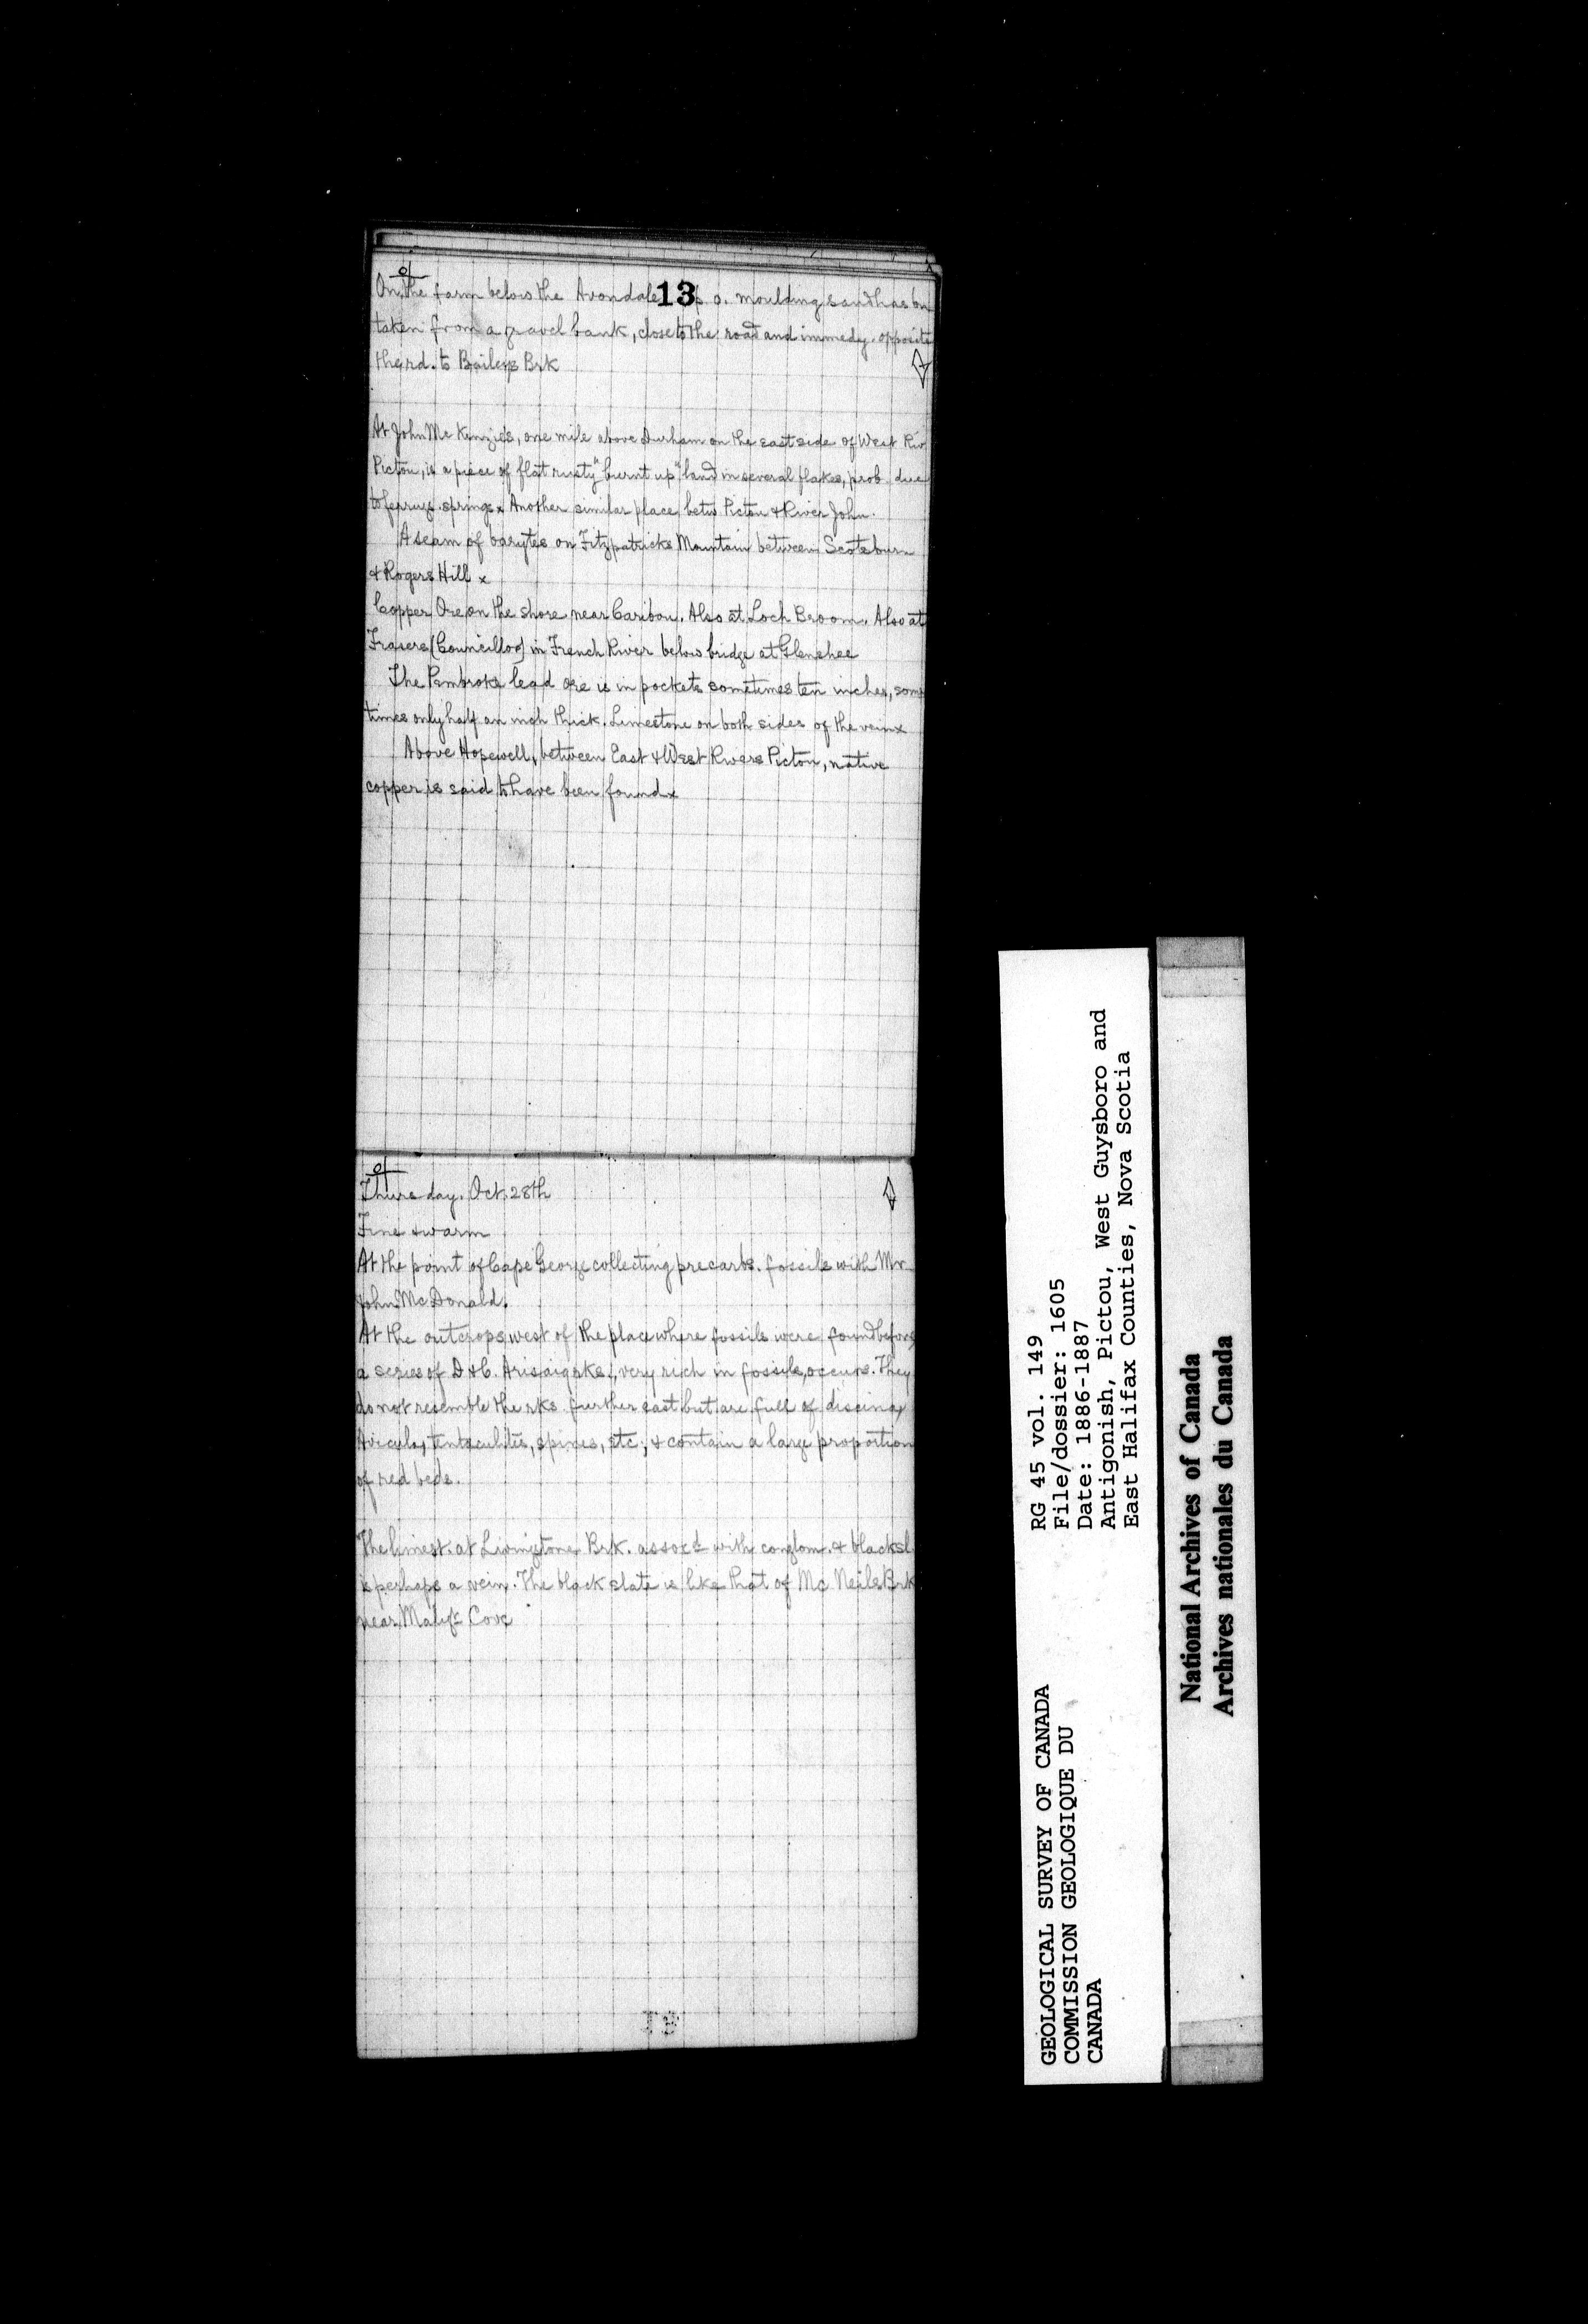 13
On the farm below the Avondale p o. moulding sand has bn
taken from a gravel bank, close to the road and immedy. opposite
the rd. to Baileys Brk
At John McKenzie's, one mile above Durham on the east side of West Riv
Pictou, is a piece of flat rusty "burnt up" land in several flakes, prob. due
to ferrug. springs x Another similar place betw Pictou & River John.
A seam of barytes on Fitzpatricks Mountain between Scotsburn
& Rogers Hill x
Copper Ore on the shore near Caribou. Also at Loch Broom. Also at
Frasers (Councillor) in French River below bridge at Glenshee
The Pembroke lead ore is in pockets sometimes ten inches, some
times only half an inch thick. Limestone on both sides of the vein x
Above Hopewell, between East & West Rivers Pictou, native
copper is said to have been found x
Thursday. Oct. 28th
Fine & warm
At the point of Cape George collecting precarb. fossils with Mr
John McDonald.
At the outcrops west of the place where fossils were found before
a series of D & C. Arisaig rks., very rich in fossils, occurs. They
do not resemble the rks further east but are full of discina,
Avicula, tentaculites, spines, etc., & contain a large proportion
of red beds.
The limest. at Livingstone Brk. assocd with conglom. & black sl.
is perhaps a vein. The black slate is like that of McNeils Brk
near Maligt Cove
RG 45 vol. 149
File/dossier: 1605
Date: 1886-1887
Antigonish, Pictou, West Guysboro and
East Halifax Counties, Nova Scotia
GEOLOGICAL SURVEY OF CANADA
COMMISSION GEOLOGIQUE DU
CANADA
National Archives of Canada
Archives nationales du Canada